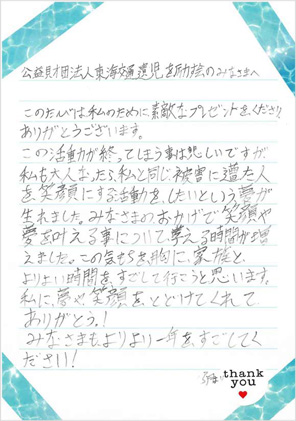 公益財団法人東海交通遺児を励ます会のみなさまへ
このたびは私のために素敵なプレゼントをくださり
ありがとうございます。
この活動が終ってしまう事は悲しいですが、
私も大人になったら、私と同じ被害に遭った人
を笑顔にする活動を、したいという夢が
生れました。みなさまのおかげで笑顔や
夢を叶える事について考える時間が増
えました。この気もちを胸に、家族と
よりよい時間をすごして行こうと思います。
私に、夢や笑顔を、とどけてくれて
ありがとう。!
みなさまもよりより一年を、すごしてく
ださい!
thank
you